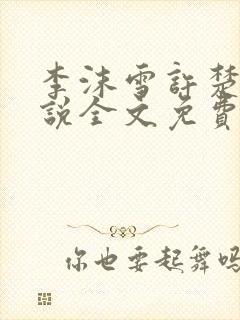 李沫雪許楚
說全文免費
你也要起舞嗎